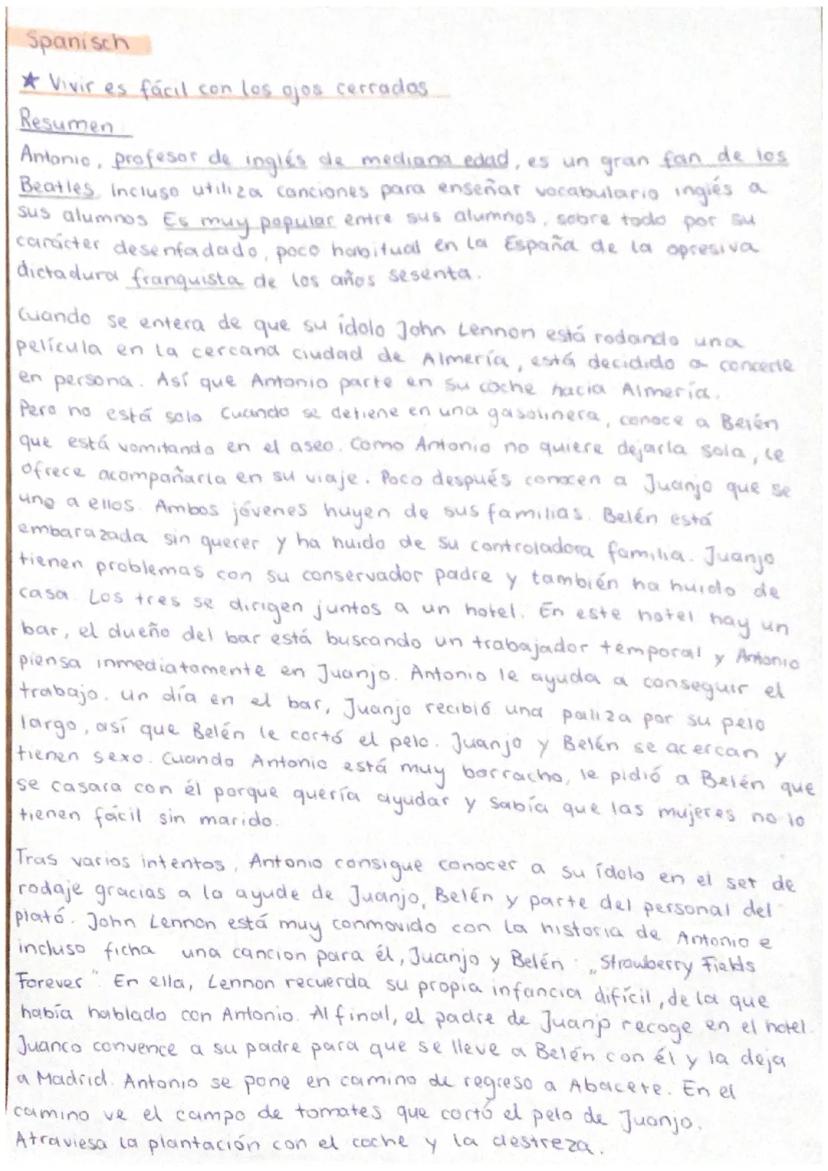 Spanisch
★ Vivir es fácil con los ojos cerrados
Resumen
Antonio, profesor de inglés de mediana edad, es un gran fan de los
Beatles. Incluso utiliza canciones para enseñar vocabulario inglés a
sus alumnos Es muy popular entre sus alumnos, sobre todo por su
carácter desenfadado, poco habitual en la España de la opresiva
dictadura franquista de los años sesenta.
Cuando se entera de que su ídolo John Lennon está rodando una
película en la cercana ciudad de Almería, está decidido a concerle
en persona. Así que Antonio parte en su coche hacia Almería.
Pero no está solo. Cuando se detiene en una gasolinera, conoce a Belén
que está vomitando en el aseo. Como Antonio no quiere dejarla sola, le
ofrece acompañarla en su viaje. Poco después conocen a Juanjo que se
une a ellos. Ambos jóvenes huyen de sus familias. Belén está
embarazada sin querer y ha huido de su controladora familia. Juanjo
tienen problemas con su conservador padre y también ha huido de
casa. Los tres se dirigen juntos a un hotel. En este hotel hay un
bar, el dueño del bar está buscando un trabajador temporal y Antonio
piensa inmediatamente en Juanjo. Antonio le ayuda a conseguir el
trabajo. Un día en el bar, Juanjo recibió una paliza por su pelo
largo, así que Belén le cortó el pelo. Juanjo y Belén se acercan y
tienen sexo. Cuando Antonio está muy borracho, le pidió a Belén que
se casara con él porque quería ayudar y sabía que las mujeres no lo
tienen fácil sin marido.
Tras varios intentos, Antonio consigue conocer a su ídolo en el set de
rodaje gracias a la ayude de Juanjo, Belén y parte del personal del
plató. John Lennon está muy conmovido con la historia de Antonio e
incluso ficha una cancion para él, Juanjo y Belén: „Strawberry Fields
Forever". En ella, Lennon recuerda su propia infancia difícil, de la que
había hablado con Antonio. Al final, el padre de Juanjo recoge en el hotel.
Juanco convence a su padre para que se lleve a Belén con él y la deja
a Madrid. Antonio se pone en camino de regreso a Abacete. En el
camino ve el campo de tomates que cortó el pelo de Juanjo.
Atraviesa la plantación con el coche y la destreza.